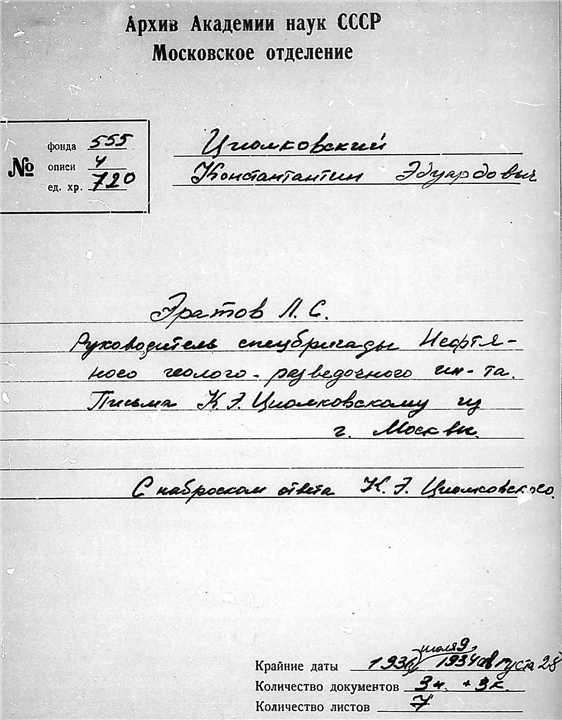 Архив Академии наук СССР
Московское отделение
№ фонда 555
описи 4
ед. хр. 720
Циолковский
Константин Эдуардович
Эратов Л. С.
Руководитель спецбригады Нефтя-
ного геолого-разведочного ин-та.
Письма К. Э. Циолковскому из
г. Москвы.
С наброском ответа К. Э. Циолковского.
июля 9,
Крайние даты 1934 августа 28
Количество документов 3 + 3к.
Количество листов 7